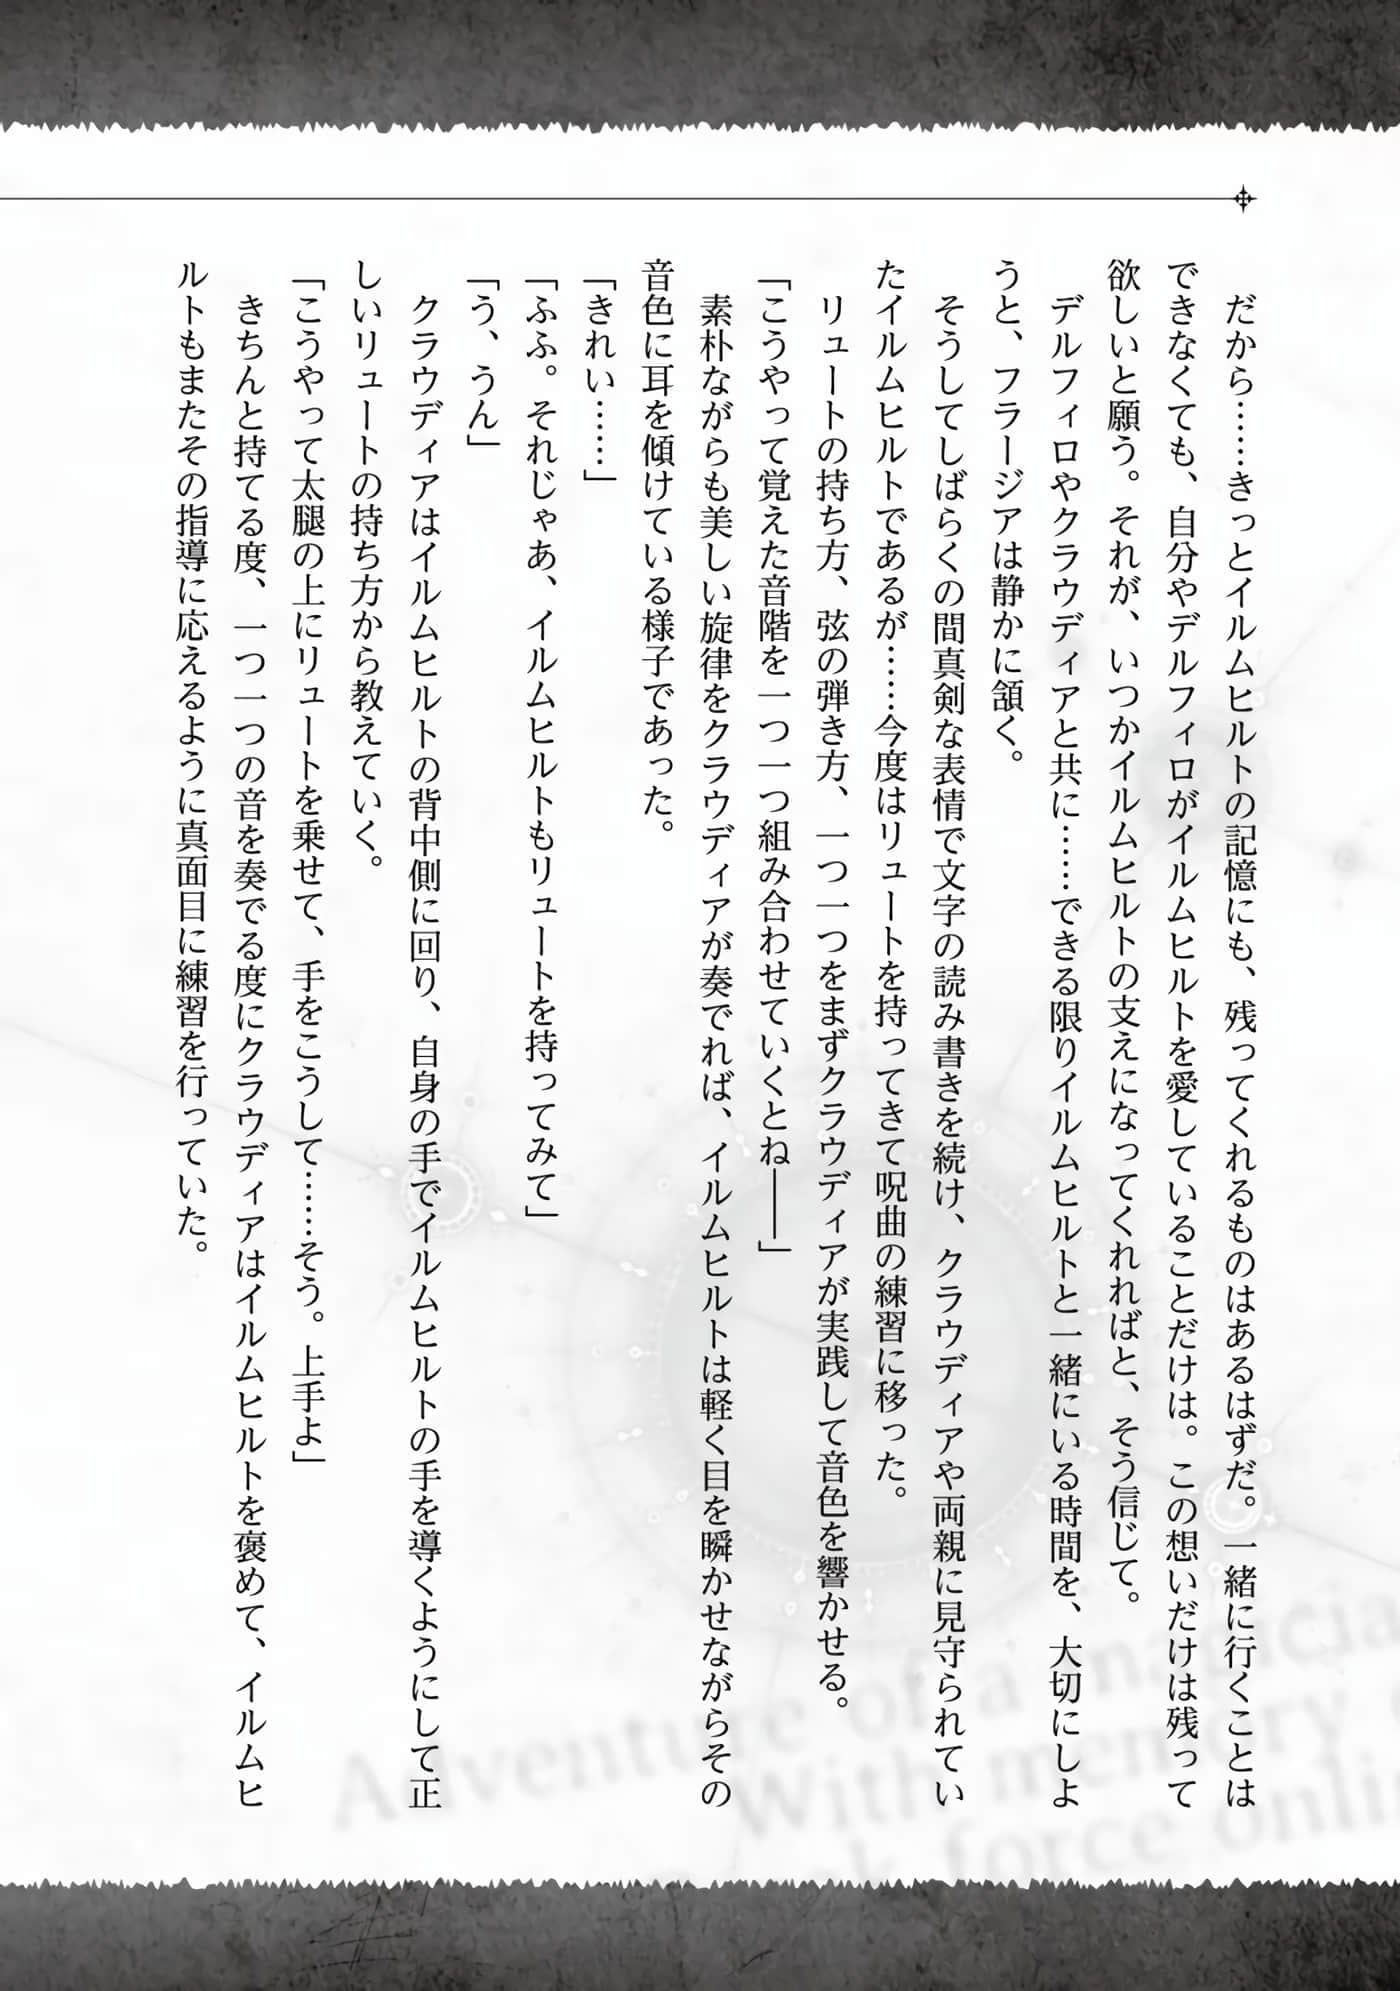 だから……きっとイルムヒルトの記憶にも、残ってくれるものはあるはずだ。一緒に行くことは
できなくても、自分やデルフィロがイルムヒルトを愛していることだけは。この想いだけは残って
欲しいと願う。それが、いつかイルムヒルトの支えになってくれればと、そう信じて。
デルフィロやクラウディアと共に……できる限りイルムヒルトと一緒にいる時間を、大切にしよ
うと、フラージアは静かに頷く。
そうしてしばらくの間真剣な表情で文字の読み書きを続け、クラウディアや両親に見守られてい
たイルムヒルトであるが……今度はリュートを持ってきて呪曲の練習に移った。
リュートの持ち方、弦の弾き方、一つ一つをまずクラウディアが実践して音色を響かせる。
「こうやって覚えた音階を一つ一つ組み合わせていくとね――」
素朴ながらも美しい旋律をクラウディアが奏でれば、イルムヒルトは軽く目を瞬かせながらその
音色に耳を傾けている様子であった。
「きれい……」
「ふふ。それじゃあ、イルムヒルトもリュートを持ってみて」
「う、うん」
クラウディアはイルムヒルトの背中側に回り、自身の手でイルムヒルトの手を導くようにして正
しいリュートの持ち方から教えていく。
「こうやって太腿の上にリュートを乗せて、手をこうして……そう。上手よ」
きちんと持てる度、一つ一つの音を奏でる度にクラウディアはイルムヒルトを褒めて、イルムヒ
ルトもまたその指導に応えるように真面目に練習を行っていた。
Adventure of a magicia
With memory
force onli